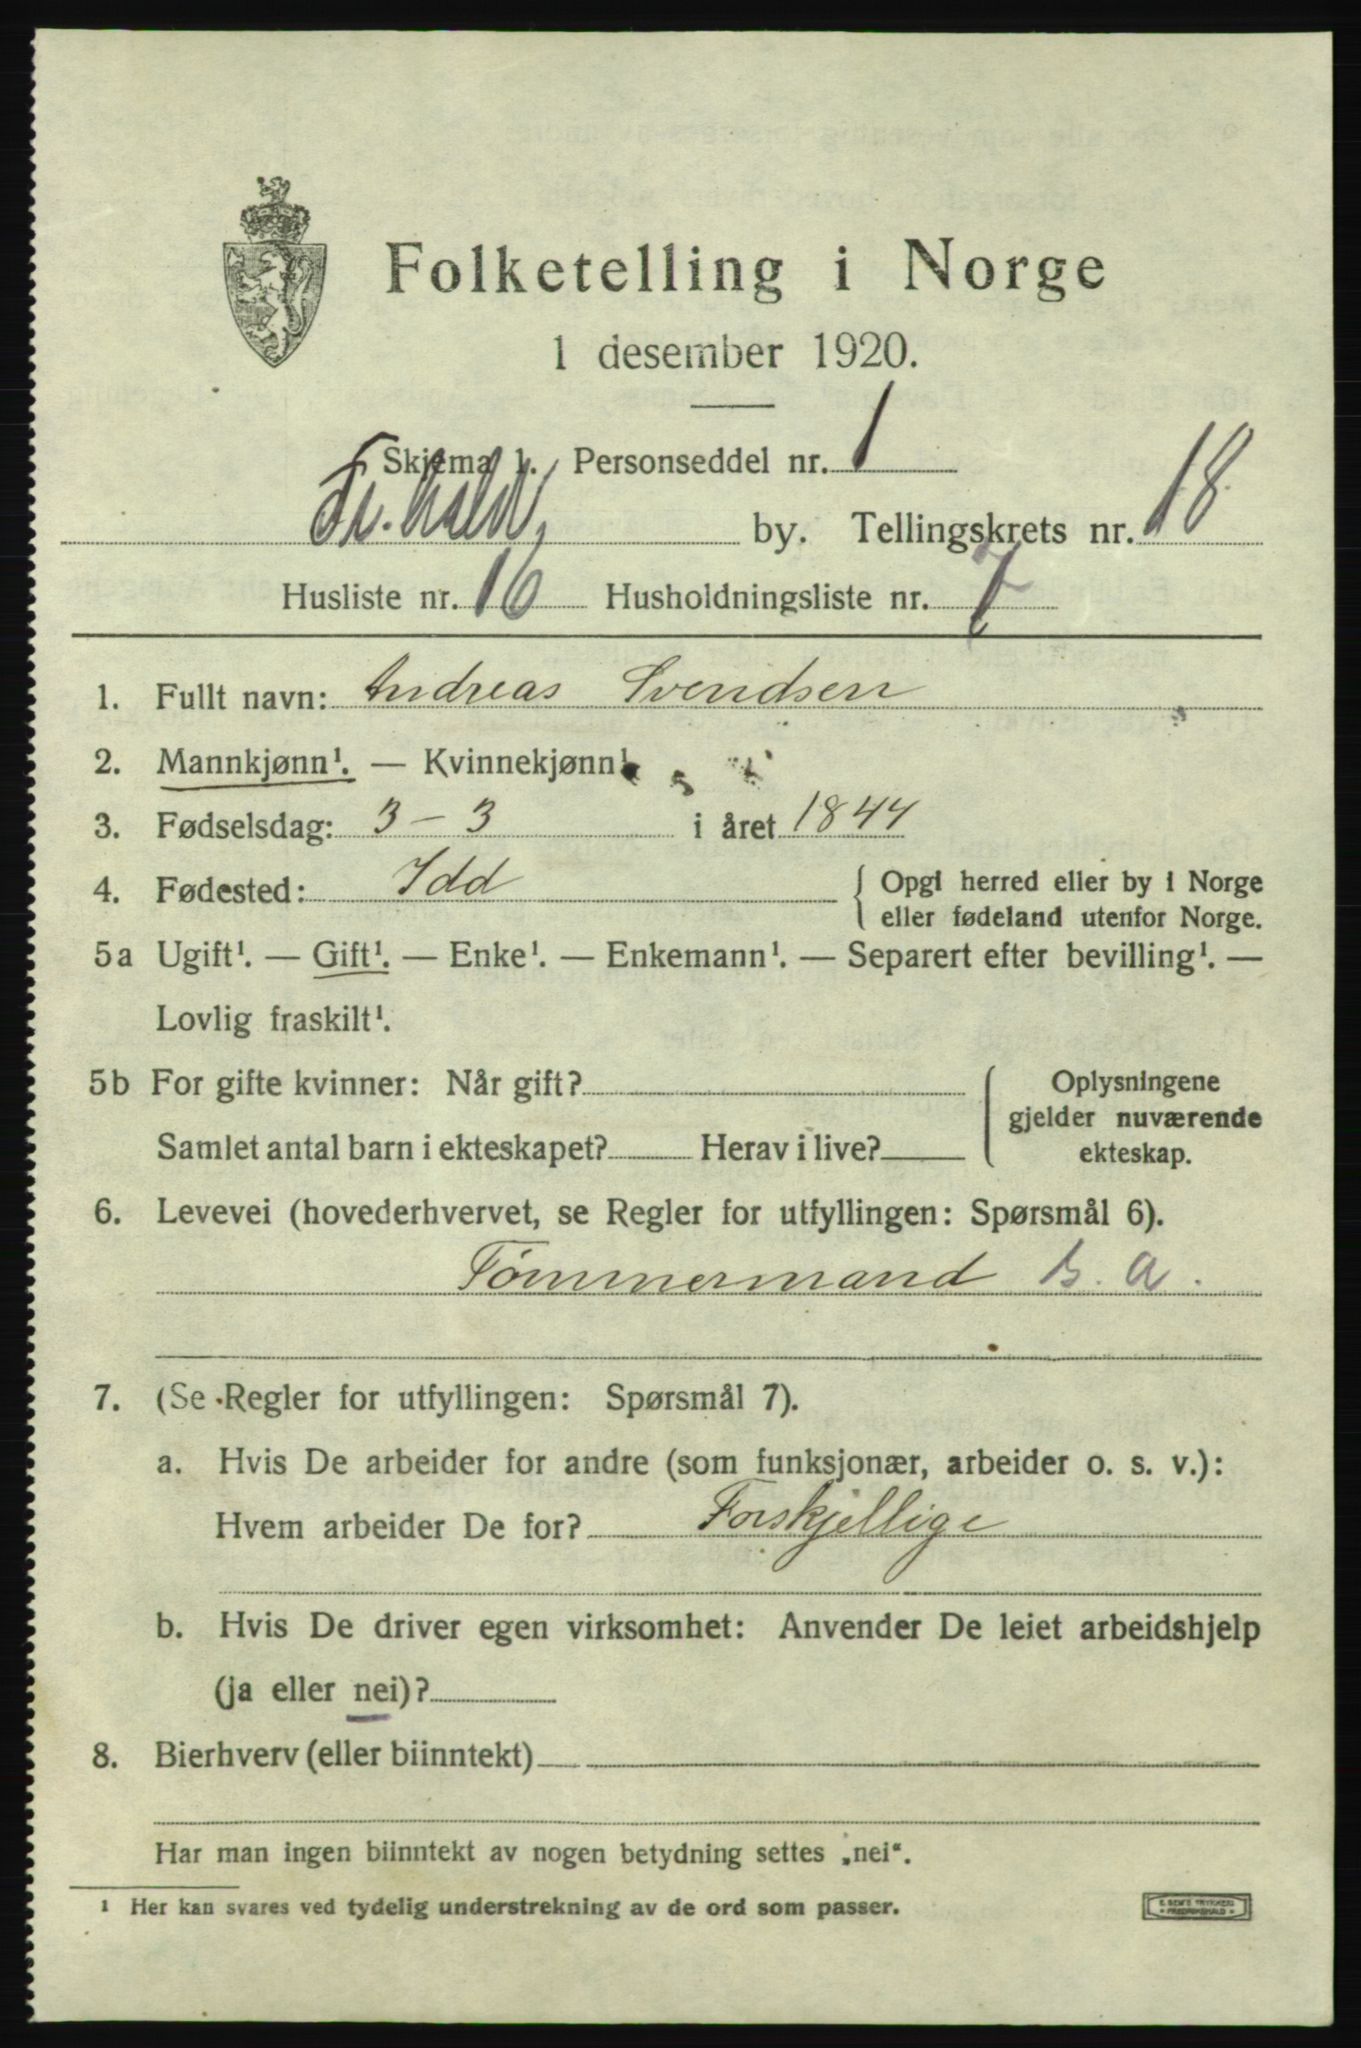 Folketelling i Norge
1 desember 1920.
Skjema 1. Personseddel nr. 1
Fr.hald, by. Tellingskrets nr. 18
Husliste nr. 16 Husholdningsliste nr. 7
1. Fullt navn: Andreas Svendsen
2. Mannkjønn¹. — Kvinnekjønn¹.
3. Fødselsdag: 3 – 3 i året 1844
4. Fødested: Idd { Opgi herred eller by i Norge
eller fødeland utenfor Norge.
5a Ugift¹. — Gift¹. — Enke¹. — Enkemann¹. — Separert efter bevilling¹. —
Lovlig fraskilt¹.
5b For gifte kvinner: Når gift? { Oplysningene
gjelder nuværende
Samlet antal barn i ekteskapet? Herav i live? ekteskap.
6. Levevei (hovederhvervet, se Regler for utfyllingen: Spørsmål 6).
Tømmermand b. a.
7. (Se Regler for utfyllingen: Spørsmål 7).
a. Hvis De arbeider for andre (som funksjonær, arbeider o. s. v.):
Hvem arbeider De for? Forskjellige
b. Hvis De driver egen virksomhet: Anvender De leiet arbeidshjelp
(ja eller nei)?
8. Bierhverv (eller biinntekt)
Har man ingen biinntekt av nogen betydning settes „nei“.
¹ Her kan svares ved tydelig understrekning av de ord som passer.